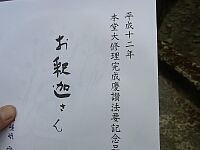 平成十二年
本堂大修理完成慶讃法要記念品
お釈迦さん